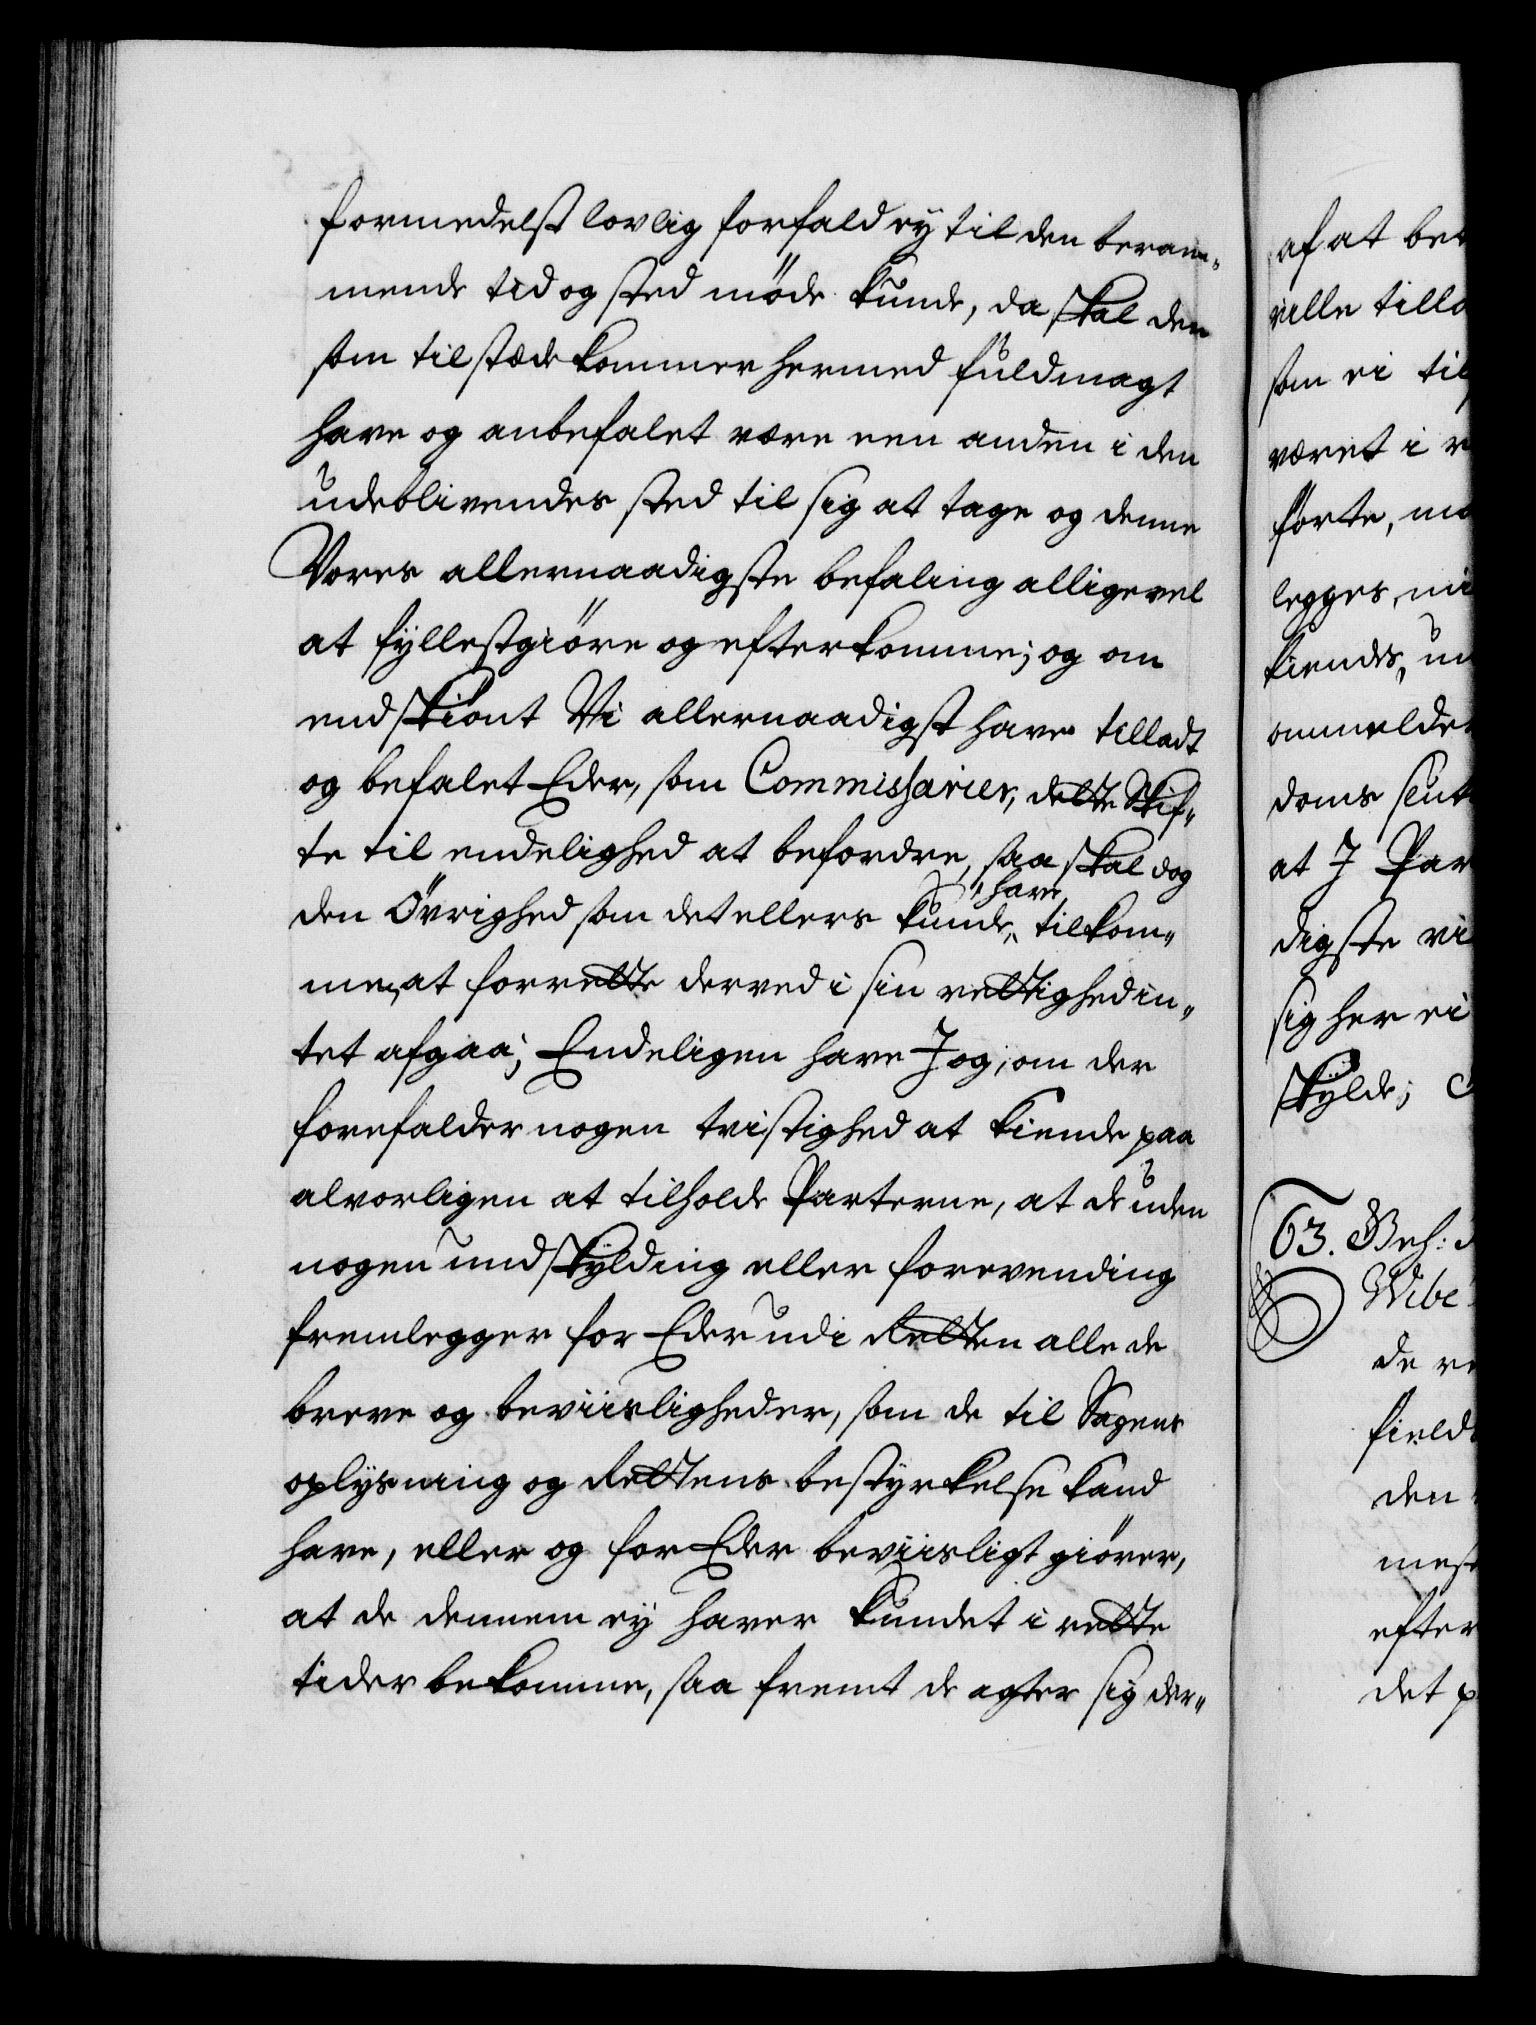 formedelst lovlig forfald ey til den beram-
mende tid og sted møde kunde, da skal den
som tilstæde kommer hermed fuldmagt
have og anbefalet være een anden i den
udeblivendes sted til sig at tage og denne
Vores allernaadigste befaling alligevel
at fyllestgiøre og efterkomme; og om
endskiønt Vi allernaadigst haver tilladt
og befalet Eder, som Commissarier, dette Skif-
te til endelighed at befordre, saa skal dog
have
den Øvrighed som det ellers kunde, tilkom-
me, at forrette derved i sin rettighed in-
tet afgaa; Endeligen have I og, om der
forefalder nogen tvistighed at kiende paa
alvorligen at tilholde Parterne, at de uden
nogen undskylding eller forevending
fremlegger for Eder udi Retten alle de
breve og beviisligheder, som de til Sagens
oplysning og Rettens bestyrkelse kand
have, eller og for Eder beviisligt giører,
at de dennem ey haver kundet i rette
tider bekomme, saa fremt de agter sig der-
af at be
ville till
som ei til
været i r
førte, m
legges, ni
kiendes, u
anmelde
doms sent
at I Par
digste vi
sig her ei
skylde;
63. Bef:
Wibe
de r
field
den
mest
efter
det p